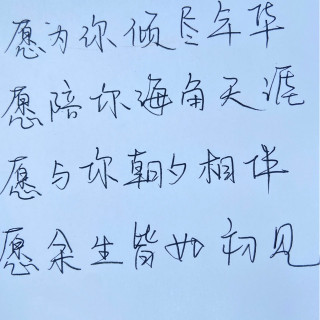 愿为你倾尽年华
愿陪你海角天涯
愿与你朝夕相伴
愿余生皆如初见